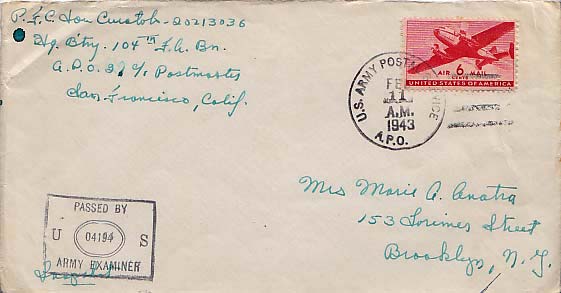 P.F.C. Lou Curatola - 20213036
Hq. Btry. 104th F.A. Bn.
A.P.O. 27 c/o Postmaster
San Francisco, Calif.
U.S. ARMY POSTAL SERVICE
FEB
11
A.M.
1943
A.P.O.
AIR 6 MAIL
CENTS
UNITED STATES OF AMERICA
Mrs Marie A. Anatra
153 Lorimer Street
Brooklyn, N.Y.
PASSED BY
U 04194 S
ARMY EXAMINER